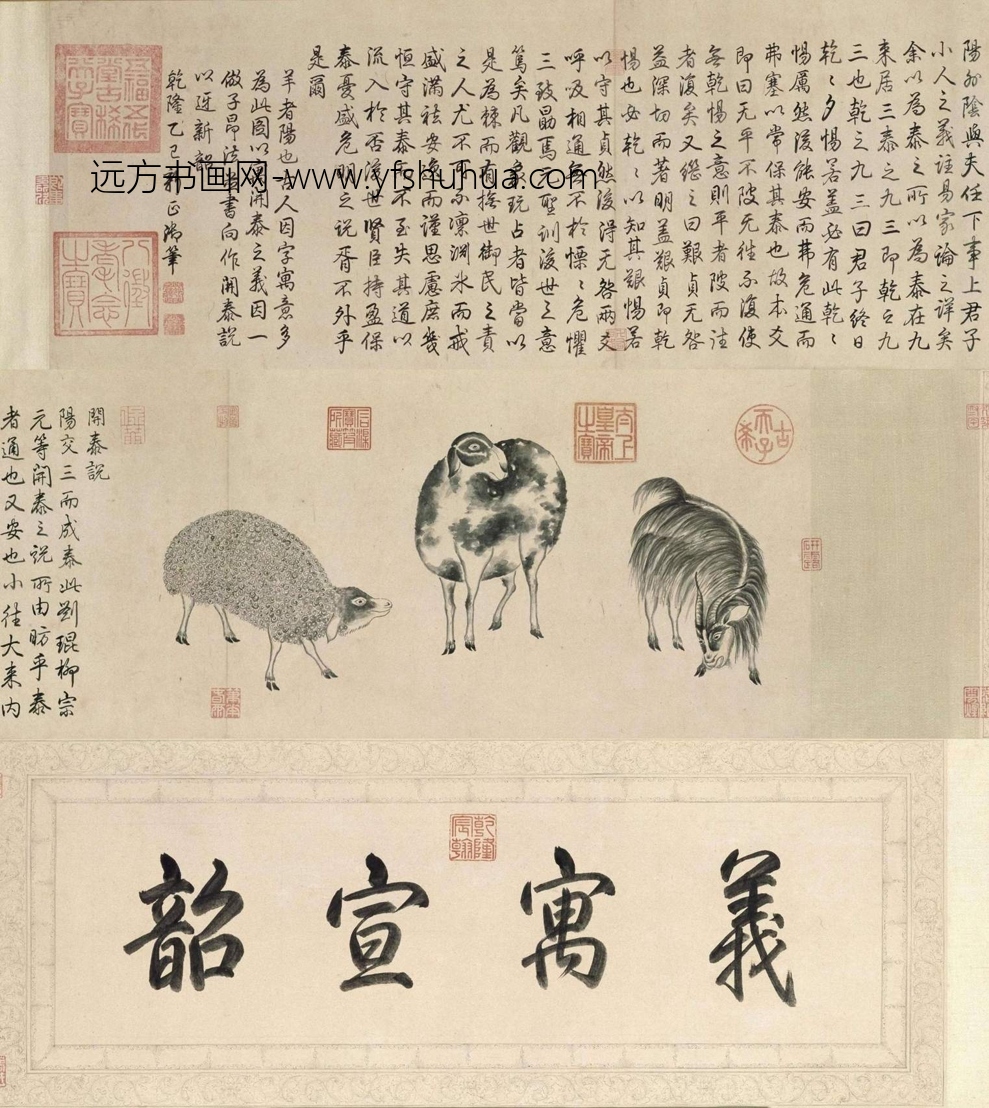 義寓宣韶
乾隆宸翰
古希天子
太上皇帝之寶
開泰說
陽交三而成泰此劉琨柳宗
元等開泰之說所由昉乎泰
者通也又安也小往大来内
陽外陰與夫任下事上君子
小人之義註易家論之詳矣
余以為泰之所以為泰在九
来居三泰之九三即乾之九
三也乾之九三曰君子終日
乾〻夕惕若蓋必有此乾〻
惕厲然後能安而弗危通而
弗塞以常保其泰也故本爻
即曰无平不陂无往不復使
無乾惕之意則平者陂而往
者復矣又繼之曰艱貞无咎
益深切而著明蓋艱貞即乾
惕也毋乾〻以知其艱惕若
以守其貞然後得无咎兩爻
呼吸相通無不於慄〻危懼
三致勗焉聖訓後世之意
篤矣凡觀象玩占者皆當以
是為棘而有撫世御民之責
之人尤不可不凜淵氷而戒
盛滿祛安逸而謹思慮庶幾
恒守其泰不至失其道以
流入於否後世賢臣持盈保
泰憂盛危明之說胥不外乎
是爾
羊者陽也古人因字寓意多
為此圖以寓開泰之義因一
倣子昂法並書向作開泰說
以迓新韶
乾隆乙巳新正御筆
五福五代堂古稀天子寶
八徵耄念之寶
远方书画网-www.yfshuhua.com